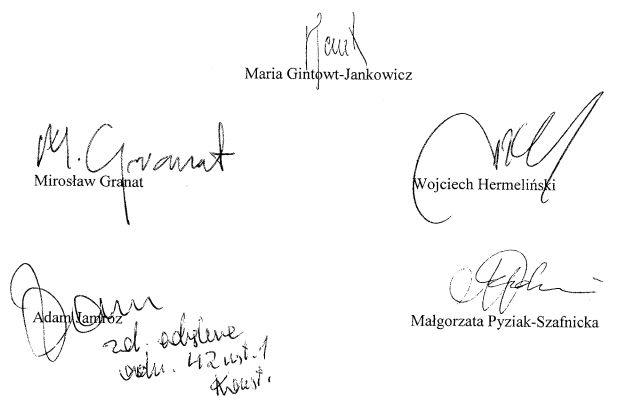 Maria Gintowt-Jankowicz
M. Granat
Mirosław Granat
Wojciech Hermeliński
Adam Jamróz
zd. odrębne
odn. 42 ust. 1
Konst.
Małgorzata Pyziak-Szafnicka